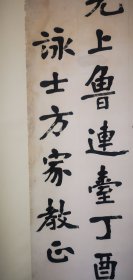 上魯連臺丁酉
詠士方家教正